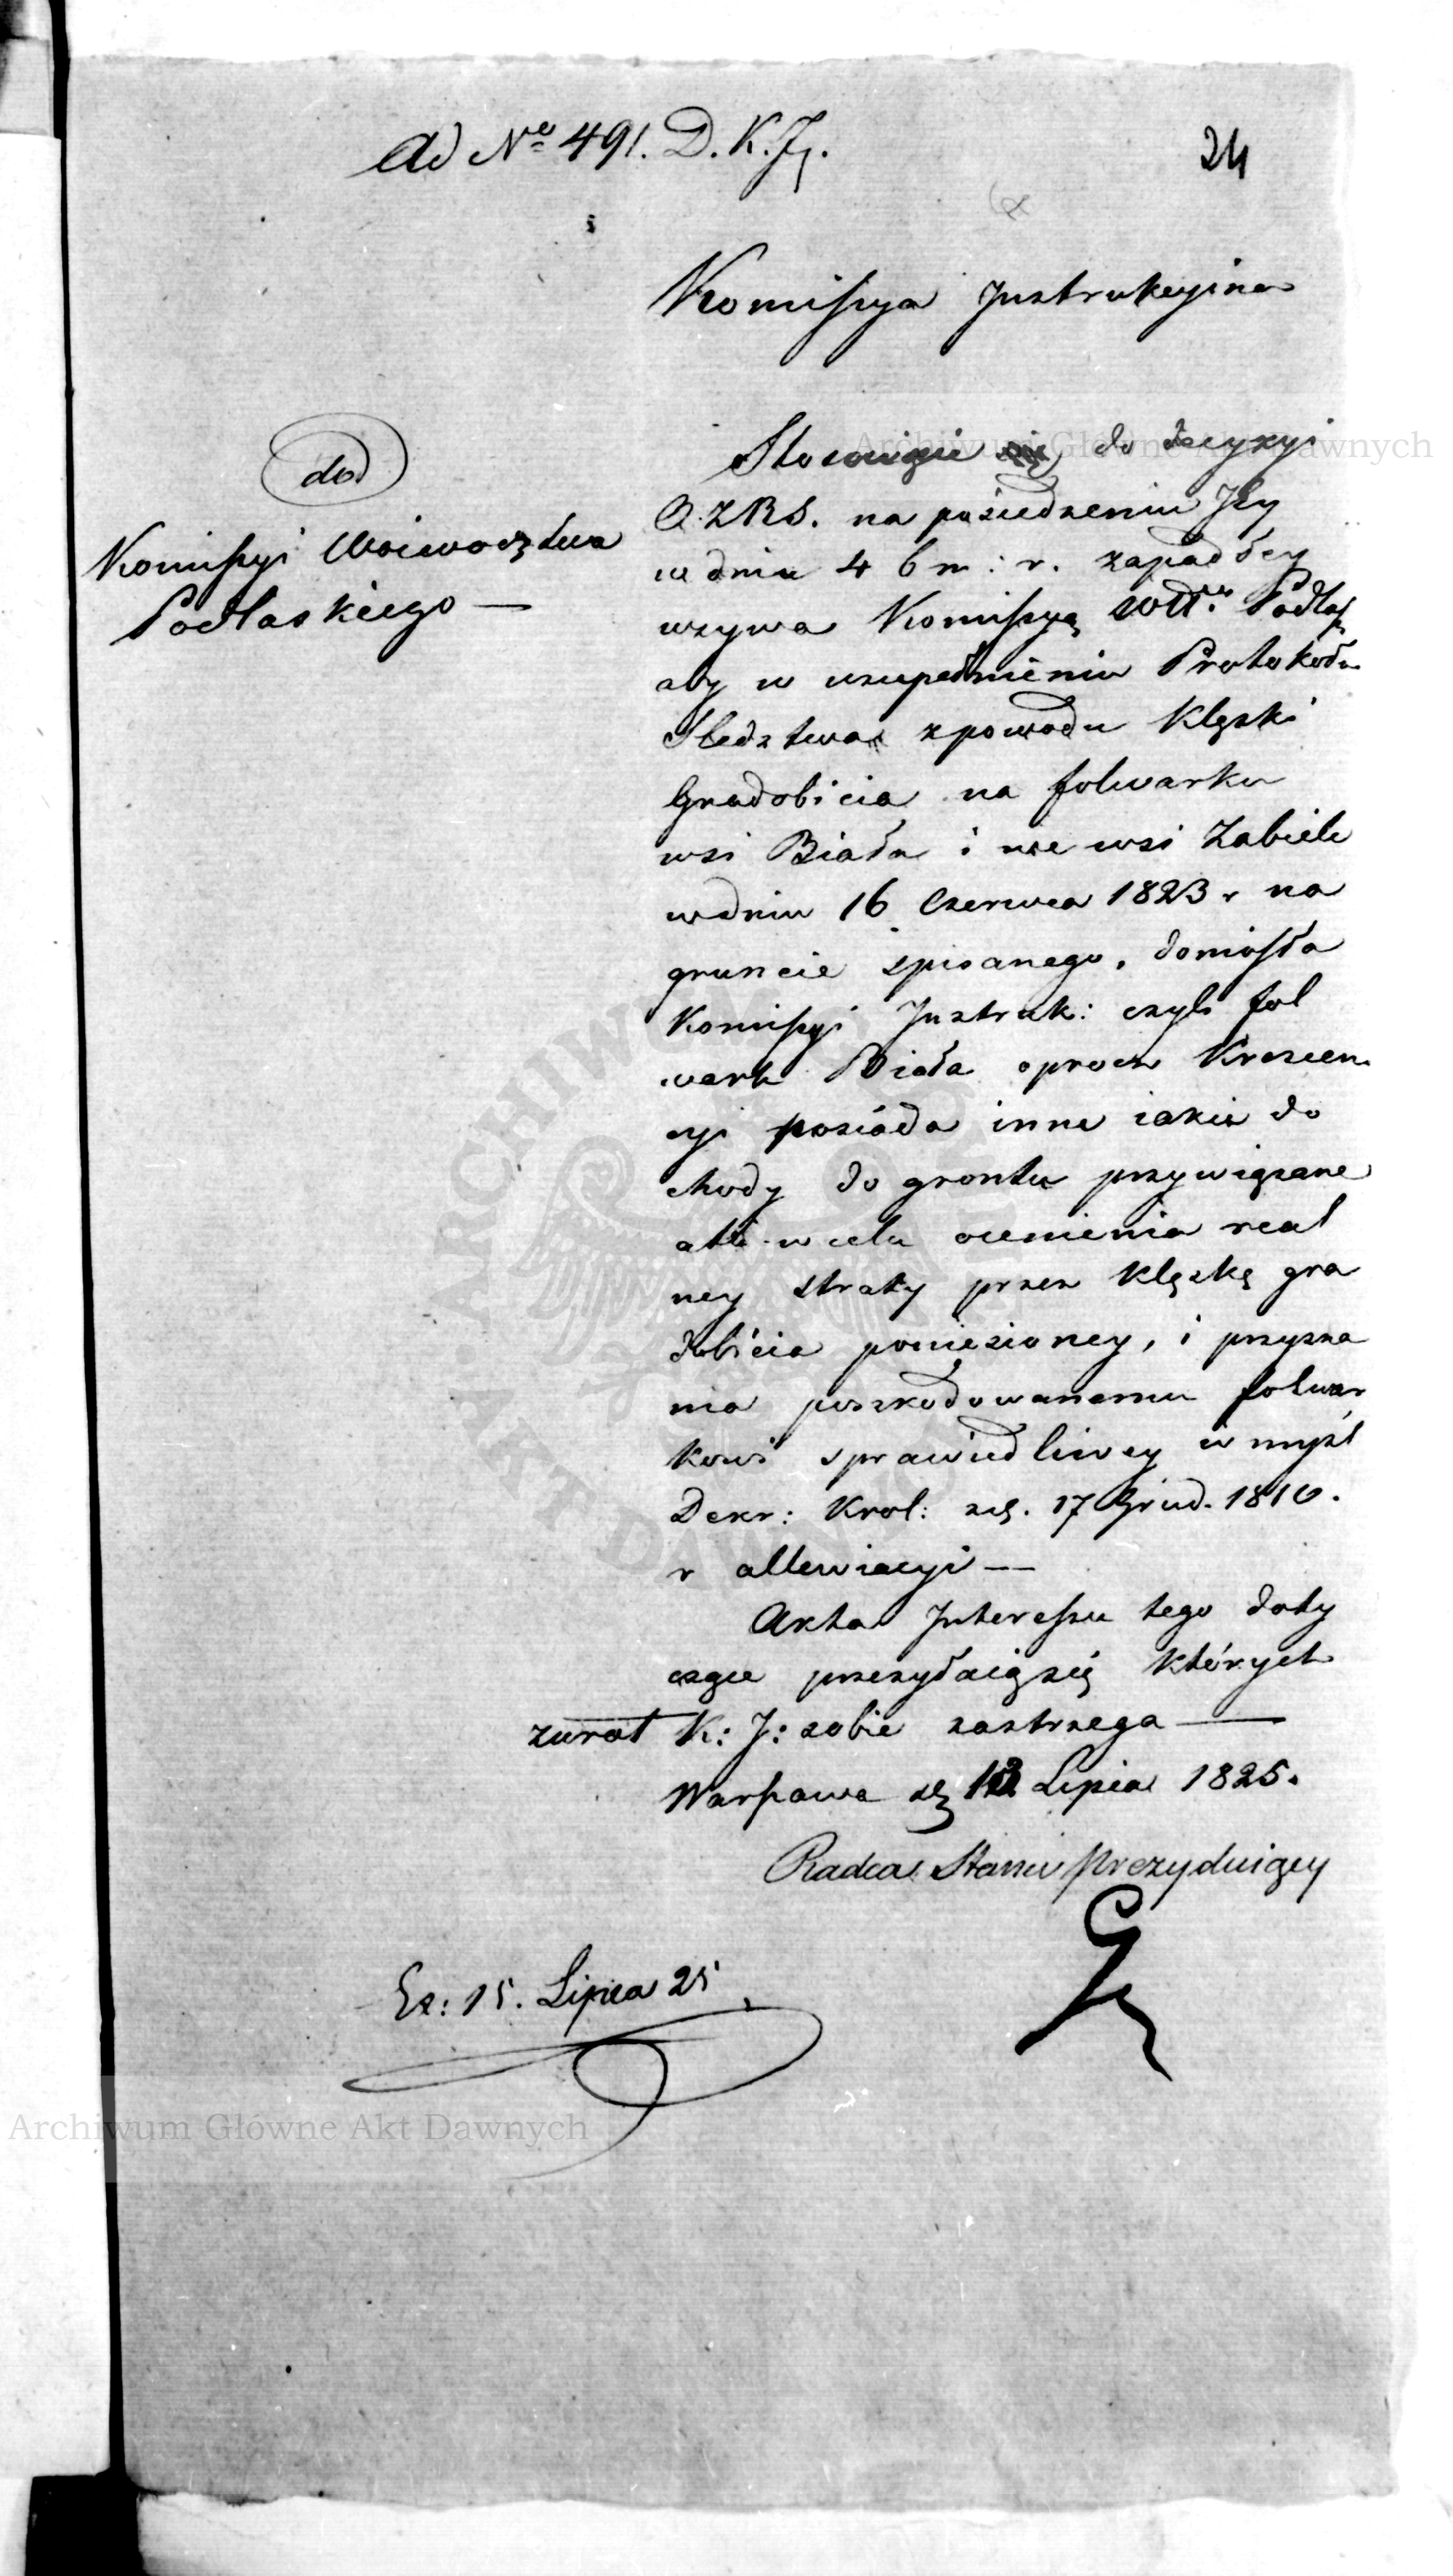 Ad No 491. D. K. J.
24
Komissya Instrukcyina
do
Komissyi Woiewodztwa
Podlaskiego —
Stosowując się do decyzyi
O.ZRS. na posiedzeniu Jey
w dniu 4 b m: r. zapadłey
wzywa Komissyą Wdtwa Podlas
aby w uzupełnieniu Protokołu
Sledztwa z powodu Klęski
Gradobicia na folwarku
wsi Biała i we wsi Zabiele
w dniu 16 Czerwca 1823 r na
gruncie spisanego, doniosła
Komissyi Instruk: czyli fol
wark Biała oprocz Krescen
cyi posiada inne iakie do
chody do gruntu przywiązane
a to w celu ocenienia real
ney straty przez klęskę gra
dobicia poniesioney, i przyzna
nia poszkodowanemu folwar
kowi sprawiedliwey w myśl
Dekr: Krol: z d. 17 Grud. 1810.
r allewiacyi —
Akta Interessu tego doty
czące przesyłaią się których
zwrot K: J: sobie zastrzega —
Warszawa d. 13 Lipca 1825.
Radca Stanu Prezyduiący
Ex: 15. Lipca 25
Archiwum Główne Akt Dawnych
Archiwum Główne Akt Dawnych
ARCHIWUM
AKT DAWNYCH